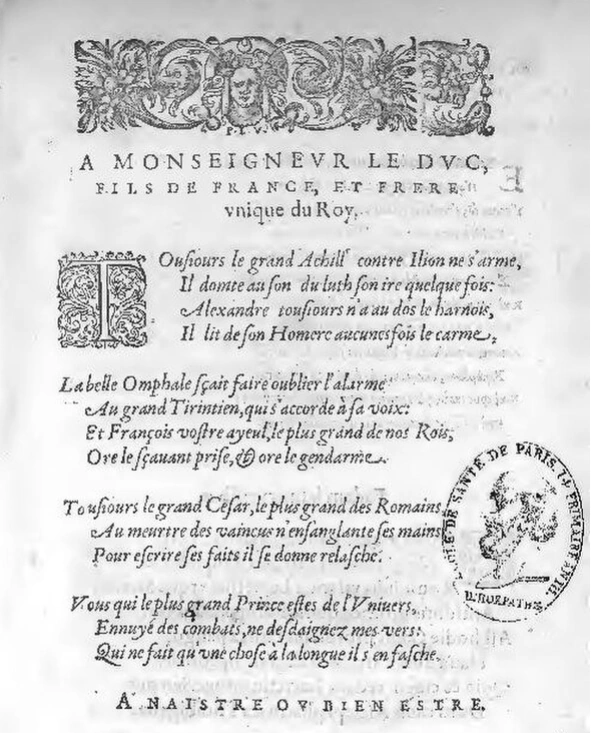 P. T. V.
A MONSEIGNEVR LE DVC,
FILS DE FRANCE, ET FRERE
vnique du Roy.
TOuſiours le grand Achill' contre Ilion ne s'arme,
Il domte au ſon du luth ſon ire quelque fois:
Alexandre touſiours n'a au dos le harnois,
Il lit de ſon Homere aucunesfois le carme,
La belle Omphale ſçait faire oublier l'alarme
Au grand Tirintien, qui s'accorde à ſa voix:
Et François voſtre ayeul, le plus grand de nos Rois,
Ore le ſçauant priſe, & ore le gendarme.
Touſiours le grand Céſar, le plus grand des Romains
Au meurtre des vaincus n'enſanglante ſes mains
Pour eſcrire ſes faits il ſe donne relaſche.
Vous qui le plus grand Prince eſtes de l'Vniuers,
Ennuyé des combats, ne deſdaignez mes vers:
Qui ne fait qu'vne choſe à la longue il s'en faſche.
A NAISTRE OV BIEN ESTRE.
DE SANTE DE PARIS